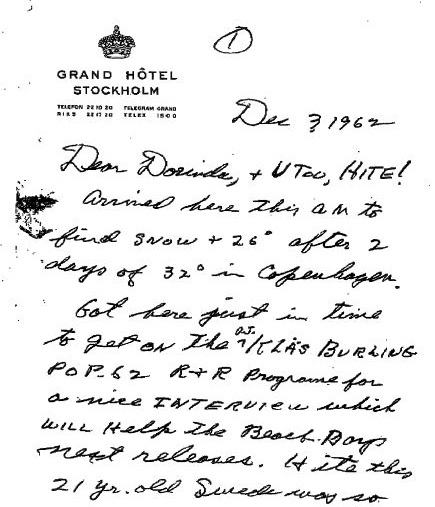 ①
GRAND HÔTEL
STOCKHOLM
TELEFON 22 10 20 TELEGRAM GRAND
RIKS TELEX
Dec 3 1962
Dear Dorinda, + U Too, HITE!
Arrived here this AM to
find snow + 26° after 2
days of 32° in Copenhagen.
Got here just in time
to get on the D.J. KLÄS BURLING
POP.62 R+R Programe for
a nice INTERVIEW which
WILL Help the Beach Boys
next releases. Hite this
21 yr. old Swede was so